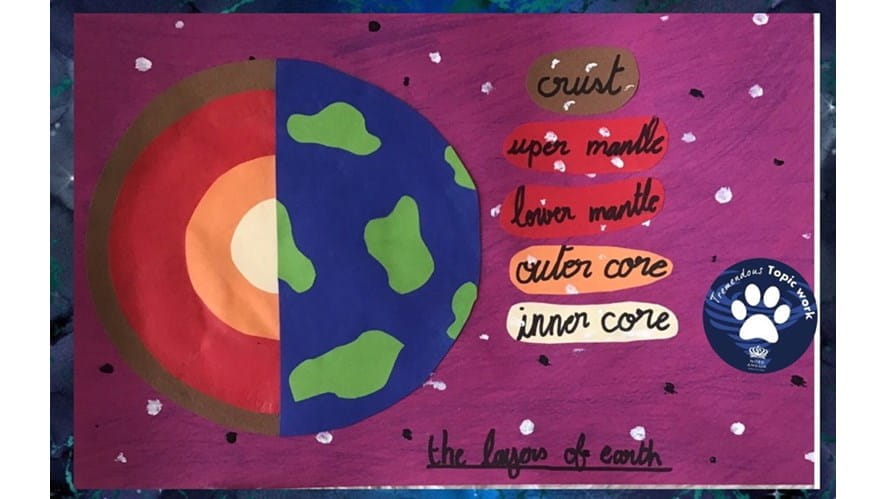 crust
uper mantle
lower mantle
outer core
inner core
Tremendous Topic work
NORD
ANGLIA
the layers of earth